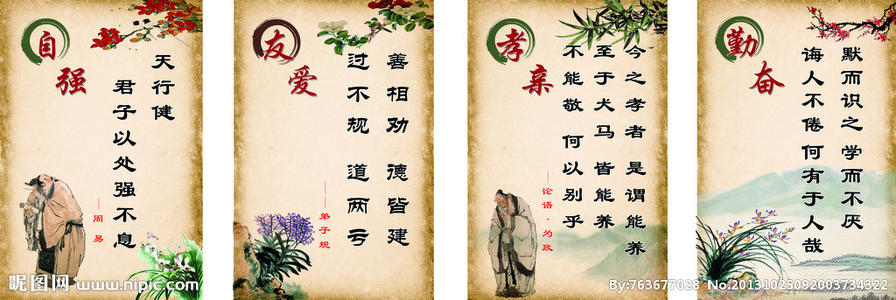 自强
天行健
君子以处强不息
——周易
友爱
善相劝 德皆建
过不规 道两亏
——弟子规
孝亲
今之孝者 是谓能养
至于犬马 皆能养
不能敬 何以别乎
——论语·为政
勤奋
默而识之 学而不厌
诲人不倦 何有于人哉
昵图网 www.nipic.com
By:763677028 No.20131025092003734322